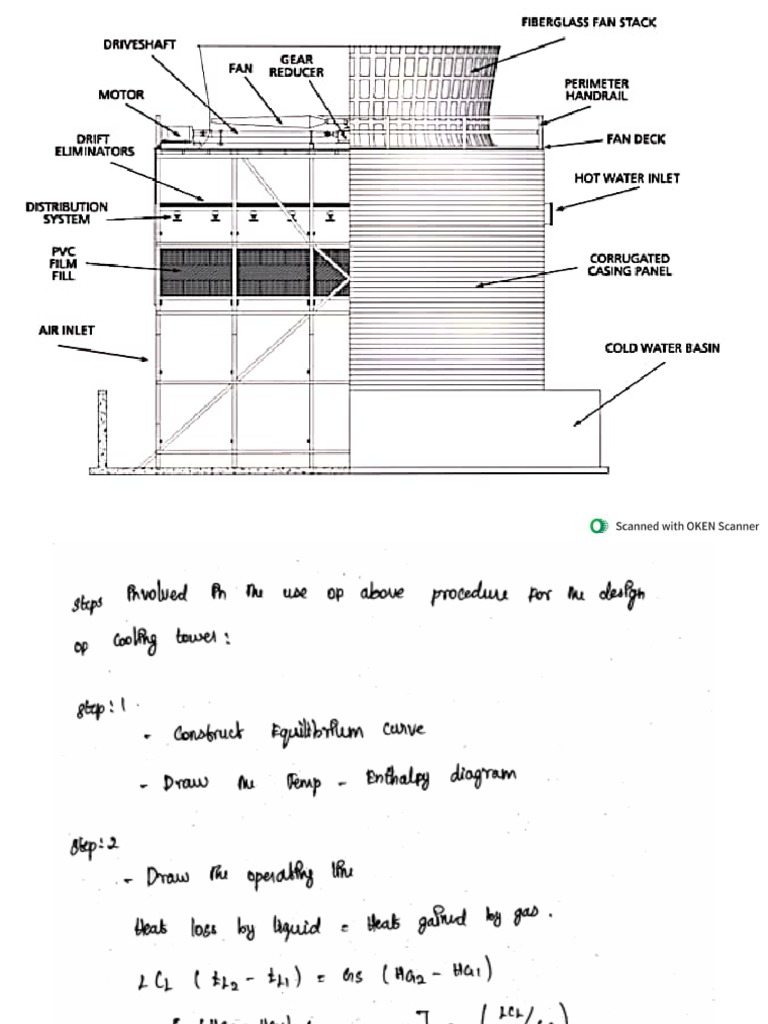 FIBERGLASS FAN STACK
DRIVESHAFT
FAN
GEAR
REDUCER
MOTOR
PERIMETER
HANDRAIL
DRIFT
ELIMINATORS
FAN DECK
HOT WATER INLET
DISTRIBUTION
SYSTEM
PVC
FILM
FILL
CORRUGATED
CASING PANEL
AIR INLET
COLD WATER BASIN
Scanned with OKEN Scanner
Steps Involved In the use of above procedure for the design
of Cooling tower :
Step : 1
- Construct Equilibrium curve
- Draw the Temp - Enthalpy diagram
Step : 2
- Draw the operating line
Heat loss by liquid = Heat gained by gas .
L CL ( tL2 - tL1 ) = Gs ( HG2 - HG1 )